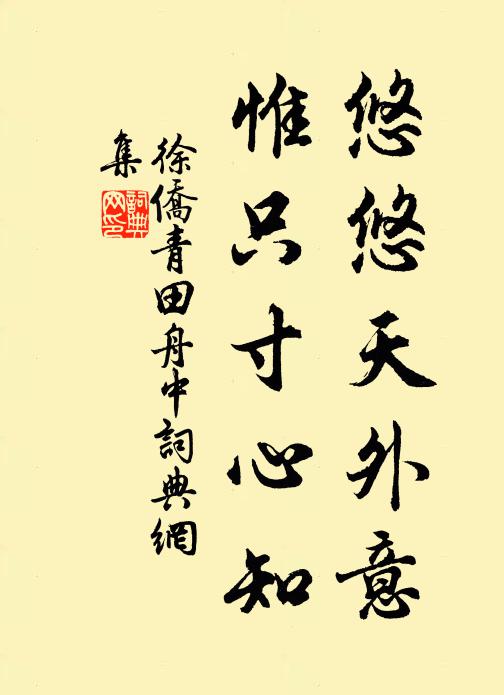 悠悠天外意
惟只寸心知
徐僑青田舟中詞典網
集
詞典
网印